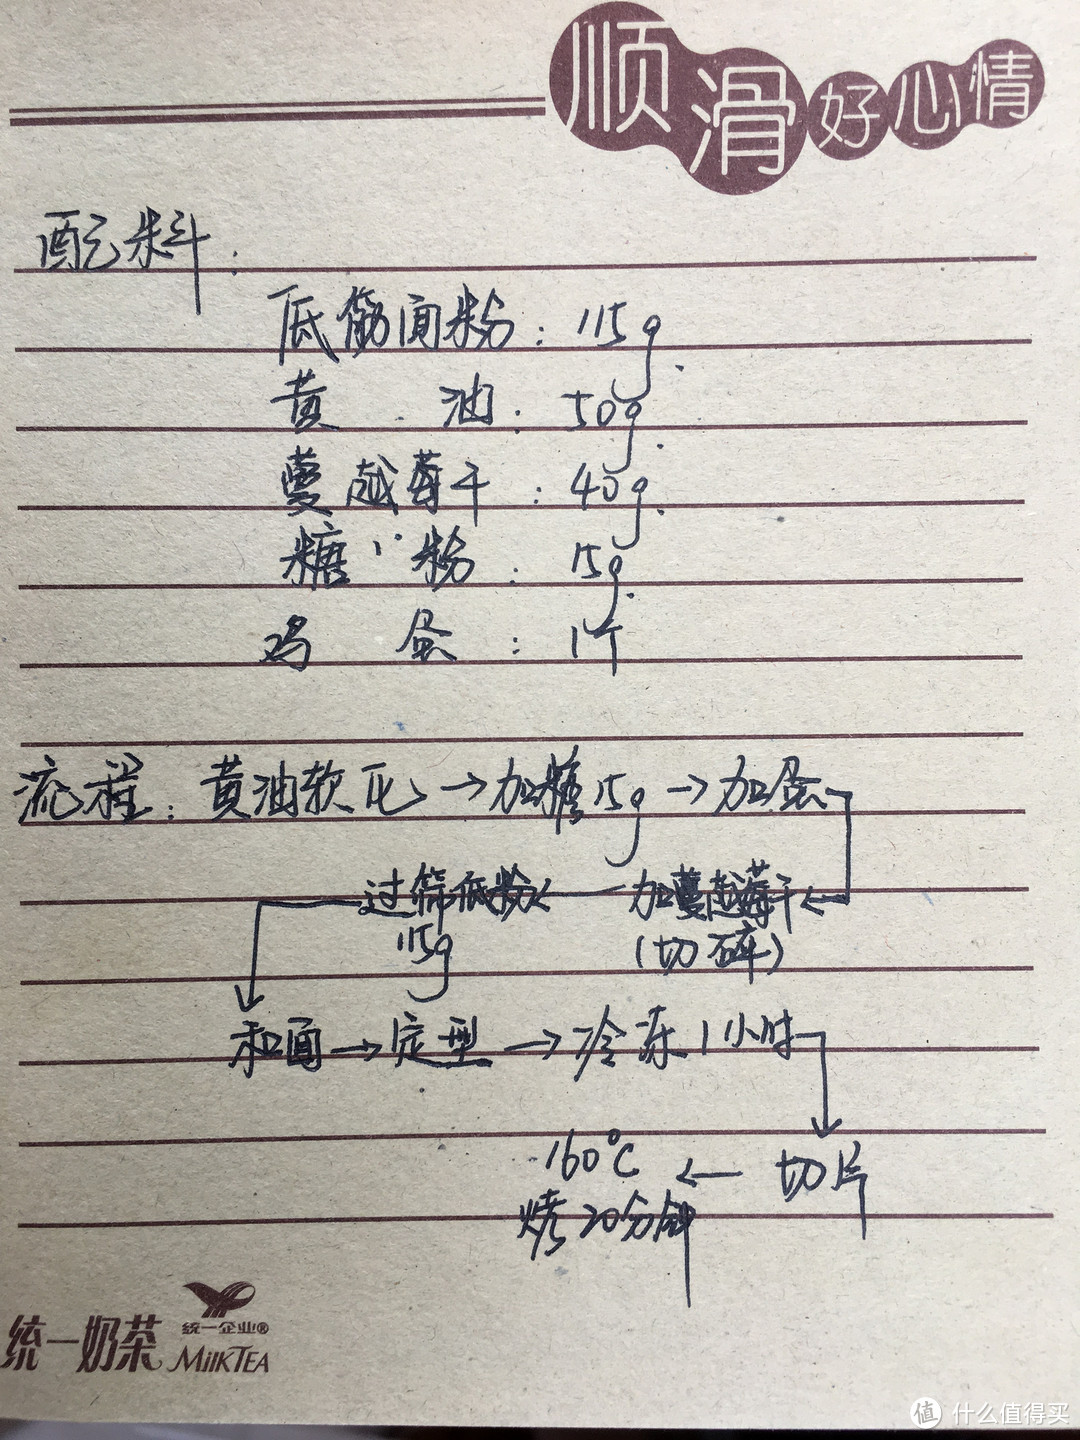 顺滑好心情
配料:
低筋面粉:115g.
黄油:50g.
蔓越莓干:40g.
糖粉:15g.
鸡蛋:1个
流程:黄油软化→加糖15g→加蛋
过筛低粉←加蔓越莓干←
115g (切碎)
和面→定型→冷冻1小时
160℃ ← 切片
烤20分钟
统一企业®
统一奶茶 MilkTEA
值 什么值得买